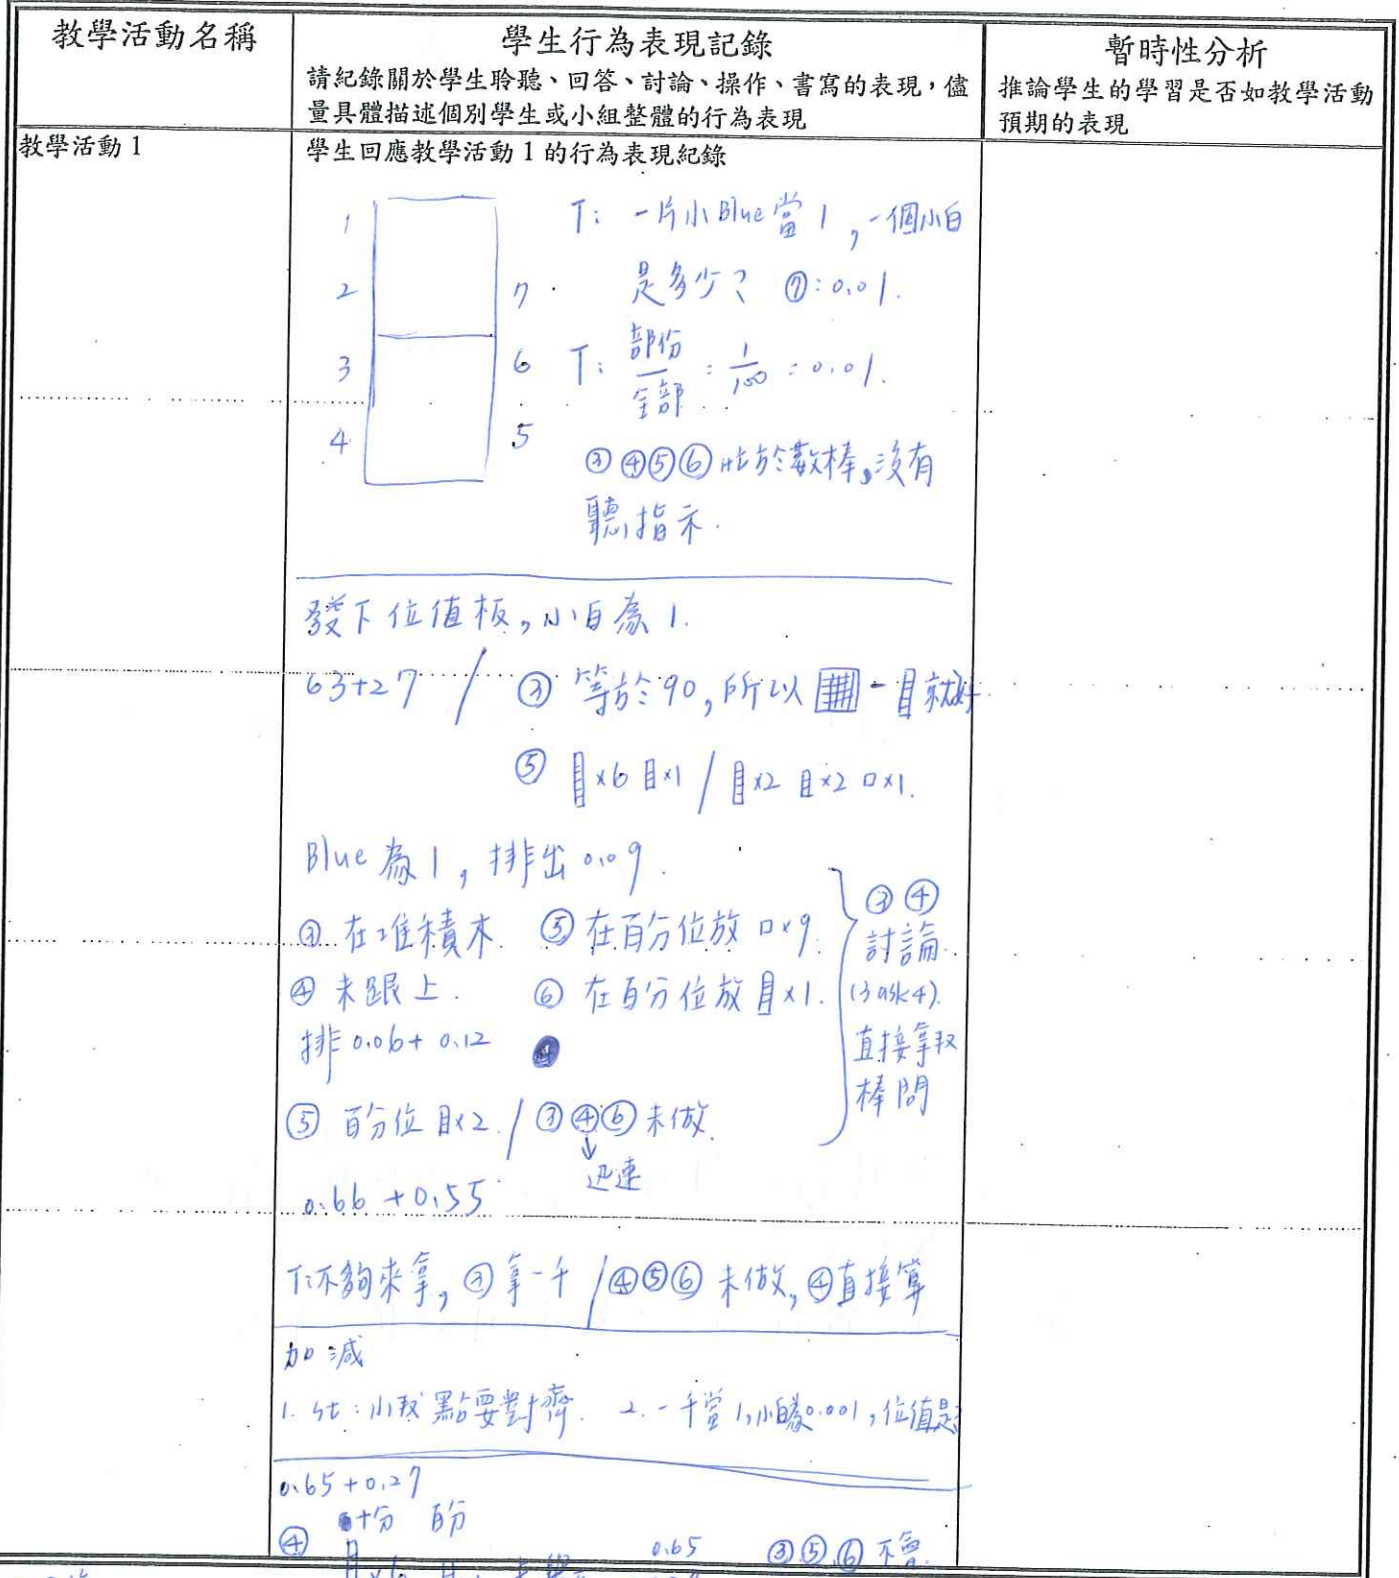 教學活動名稱
學生行為表現記錄
請紀錄關於學生聆聽、回答、討論、操作、書寫的表現，儘
量具體描述個別學生或小組整體的行為表現
暫時性分析
推論學生的學習是否如教學活動
預期的表現
教學活動 1
學生回應教學活動 1 的行為表現紀錄
1
2
3
4
7
6
5
T: 一片小Blue當 1，一個小白
是多少？ ⑦:0.01.
T: 部份/全部 = 1/100 = 0.01.
③④⑤⑥ 忙於數棒，沒有
聽指示.
發下位值板，小白為 1.
63+27 / ③ 等於 90，所以 一 就好
⑤ ×6 ×1 / ×2 ×2 □×1.
Blue 為 1，排出 0.09.
③ 在堆積木. ⑤ 在百分位放 □×9.
④ 未跟上. ⑥ 在百分位放 ×1.
③ ④
討論.
(3 ask 4).
直接拿取
棒問
排 0.06+0.12
⑤ 百分位 ×2. / ③④⑥ 未做.
↓
迅速
0.66 + 0.55
T:不夠來拿，③ 拿一千 / ④⑤⑥ 未做，④直接算
加減
1. st：小數點要對齊. 2. 一千當 1，小白為0.001，位值是
0.65+0.27
十分 百分
④
0.65
③⑤⑥ 不會.